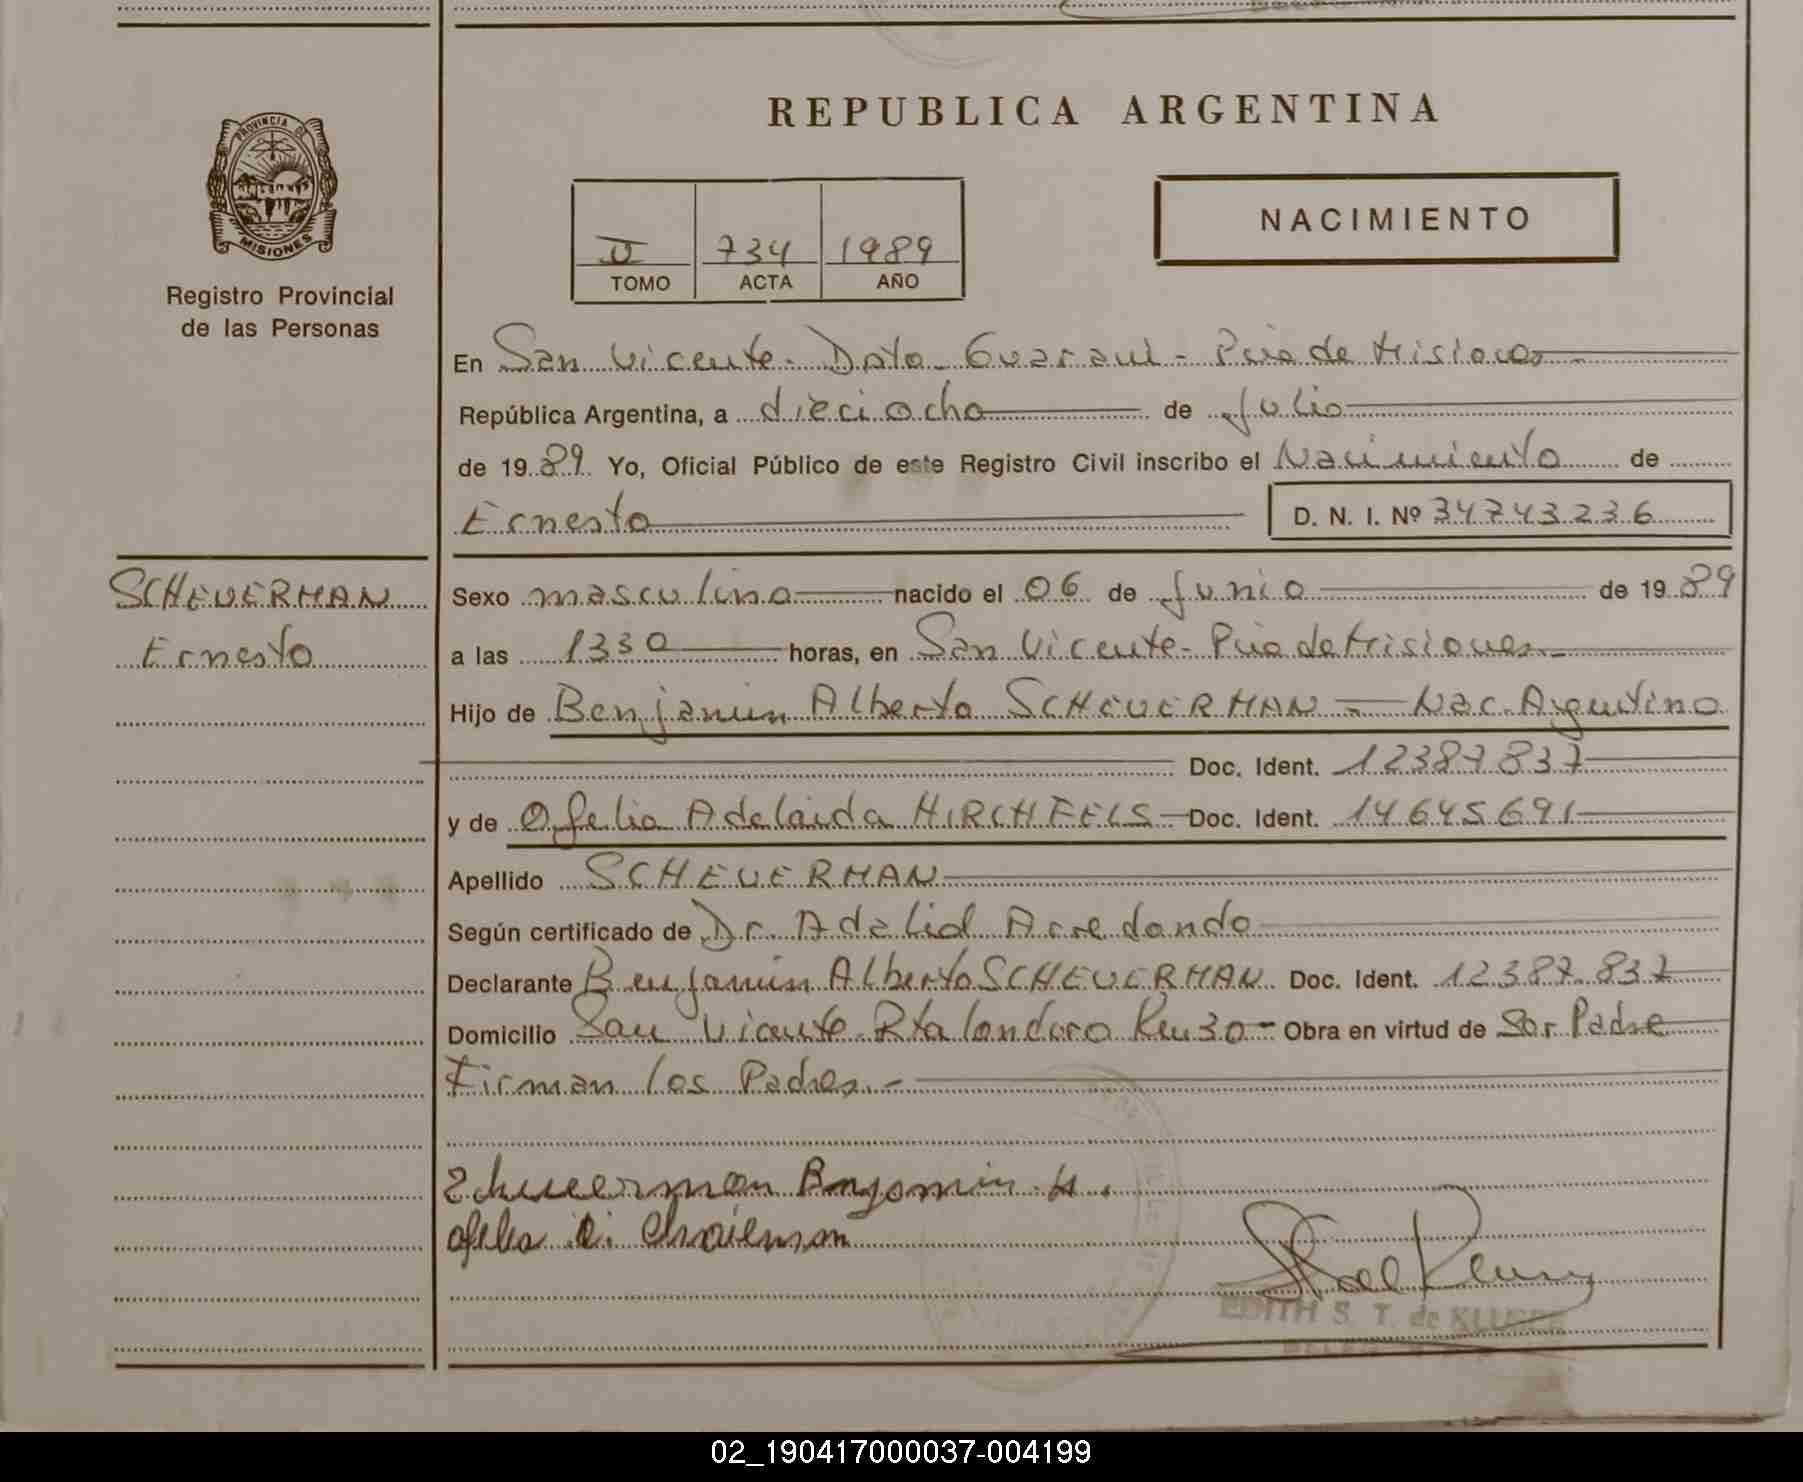 REPUBLICA ARGENTINA
PROVINCIA DE
MISIONES
Registro Provincial
de las Personas
II 734 1989
TOMO ACTA AÑO
NACIMIENTO
En San Vicente - Dpto. Guarani - Pcia de Misiones
República Argentina, a dieciocho de Julio
de 1989 Yo, Oficial Público de este Registro Civil inscribo el Nacimiento de
Ernesto
D. N. I. Nº 34743236
SCHEUERMAN
Ernesto
Sexo masculino nacido el 06 de Junio de 1989
a las 1330 horas, en San Vicente - Pcia de Misiones
Hijo de Benjamin Alberto SCHEUERMAN - Nac. Argentino
Doc. Ident. 12387837
y de Ofelia Adelaida HIRCHFELS - Doc. Ident. 14645691
Apellido SCHEUERMAN
Según certificado de Dr. Adalid Arredondo
Declarante Benjamin Alberto SCHEUERMAN Doc. Ident. 12387.837
Domicilio San Vicente - Rta Londero Km 30 - Obra en virtud de Ser Padre
Firman los Padres. -
Benjamin
EDITH S. T. de
02_190417000037-004199